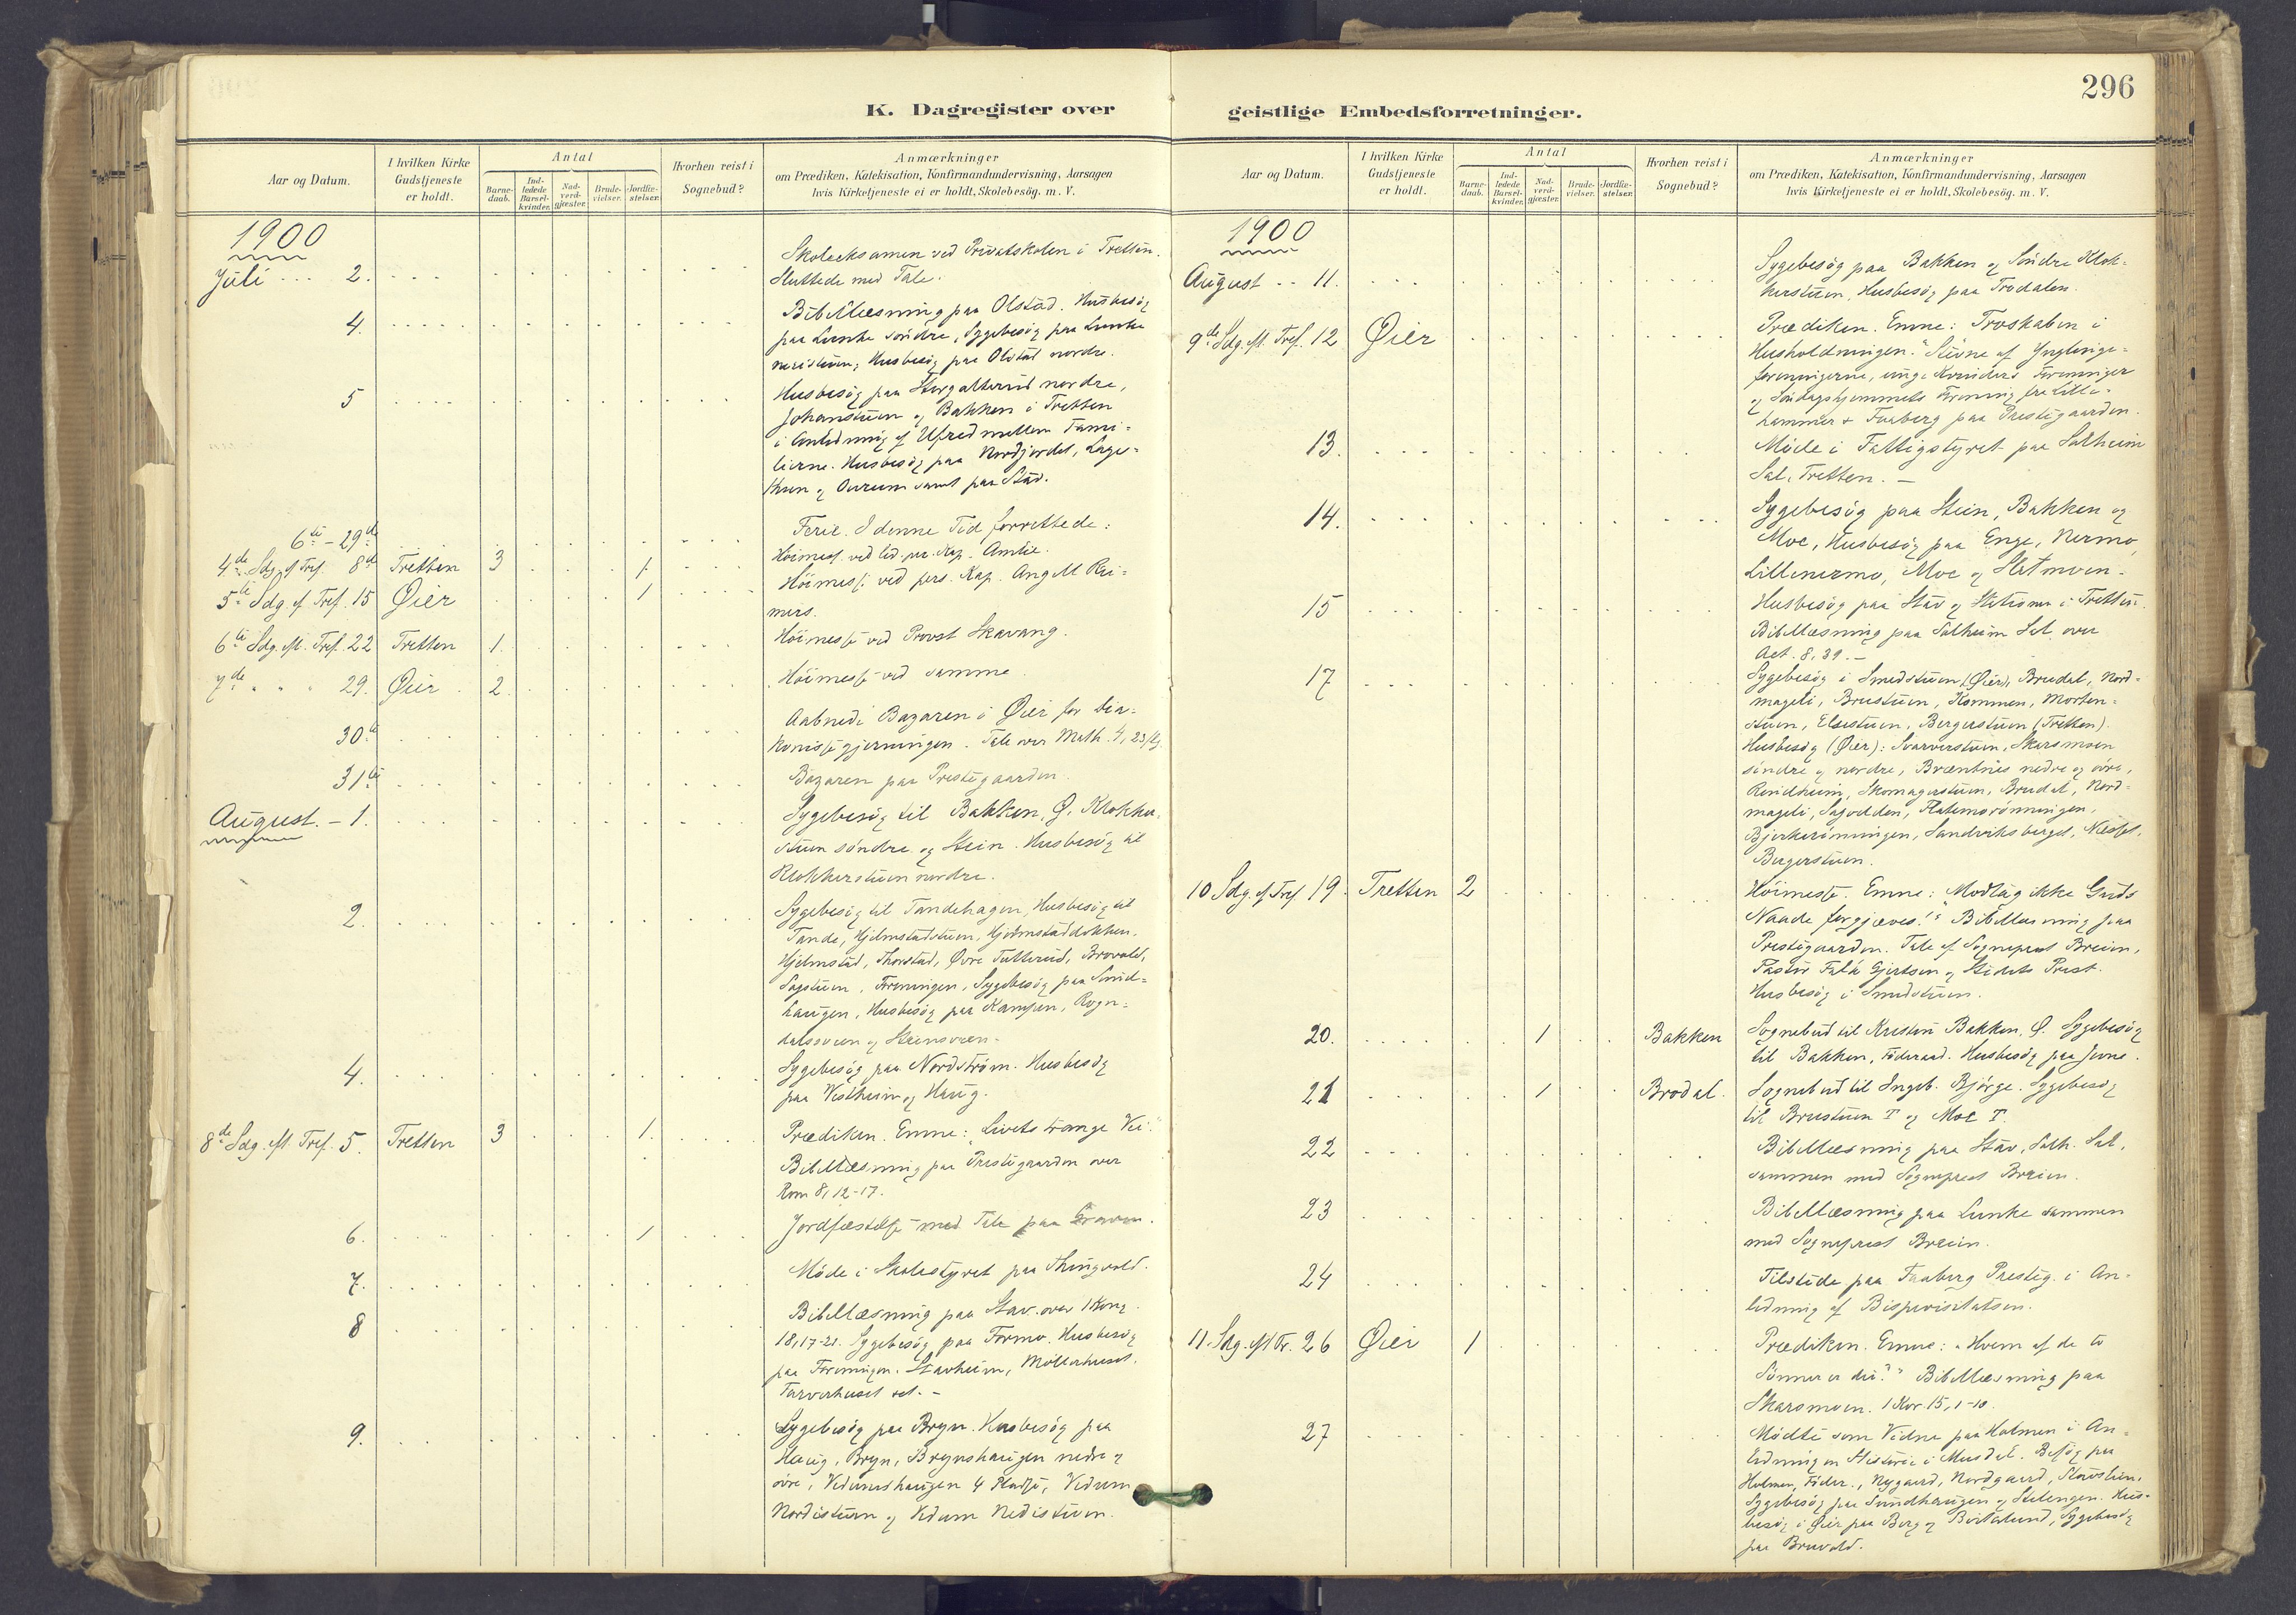 296
K. Dagregister over geistlige Embedsforretninger.
Aar og Datum.
I hvilken Kirke
Gudstjeneste
er holdt.
Antal
Barne-
daab.
Ind-
ledede
Barsel-
kvinder.
Nad-
verd-
gjæster.
Brude-
vielser.
Jordfæ-
stelser.
Hvorhen reist i
Sognebud?
Anmærkninger
om Prædiken, Katekisation, Konfirmandundervisning, Aarsagen
hvis Kirketjeneste ei er holdt, Skolebesög. m. V.
1900
Juli 2.
Skoleeksamen ved Privatskolen i Tretten.
Sluttede med Tale.
4.
Bibellæsning paa Olstad. Husbesög
paa Lunke söndre, Sygebesög paa Lunke
neristuen; Husbesög paa Olstad nordre.
5
Husbesög paa nordre,
Johanstuen og Bakken i Tretten
i Anledning af Ufred mellem Fami-
lierne. Husbesög paa Nordjordet,
og samt paa Stav.
6te - 29de
Ferie. I denne Tid forrettede:
4de Sdg. ef Tref. 8de Tretten 3 1
Höimesse ved
5te Sdg. ef Tref. 15 Øier 1
Höimesse ved pers. Kap. Rei-
mers.
6te Sdg. eft. Tref. 22 Tretten 1.
Höimesse ved Provst Skavang.
7de " " " 29. Øier 2
Höimesse ved samme.
30te
Aabnedi Bazaren i Øier for Dia-
konissegjerningen. Tale over Math. 4, 23
31te
Bazaren paa Prestegaarden.
August. - 1.
Sygebesög til Bakken, Ø, Klokker-
stuen söndre og Stein. Husbesög til
Klokkerstuen nordre.
2.
Sygebesög til Tandehagen, Husbesög til
Tande, Hjelmstadstuen, Hjelmstaddokken.
Hjelmstad, Thorstad, Øvre Tullerud,
Sagstuen, Foreningen, Sygebesög paa Smid-
haugen, Husbesög paa Kampen, Rogn-
og
4.
Sygebesög paa Nordström. Husbesög
paa Vestheim og Haug.
8de Sdg. eft. Tref. 5. Tretten 3 1.
Prædiken. Emne: "Livets trange Vei."
Bibellæsning paa Prestegaarden over
Rom 8, 12-17.
6. 1
Jordfæstelse med Tale paa Graven.
7.
Möde i Skolestyret paa Thingvold.
8
Bibellæsning paa Stav over 1 Kong.
18, 17-21. Sygebesög paa Formo. Husbesög
paa Foreningen. Stavheim, Möllerhuset.
Farverhuset
9.
Sygebesög paa Bryn. Husbesög paa
Haug, Bryn, Brynshaugen nedre og
övre, Vedumshaugen 4 Pladse, Vedum
Nordistuen og Vedum Nedistuen.
Aar og Datum.
I hvilken Kirke
Gudstjeneste
er holdt.
Antal
Barne-
daab.
Ind-
ledede
Barsel-
kvinder.
Nad-
verd-
gjæster.
Brude-
vielser.
Jordfæ-
stelser.
Hvorhen reist i
Sognebud?
Anmærkninger
om Prædiken, Katekisation, Konfirmandundervisning, Aarsagen
hvis Kirketjeneste ei er holdt, Skolebesög. m. V.
1900
August 11.
Sygebesög paa Bakken og Söndre Klok-
kerstuen, Husbesög paa Trodalen.
9de Sdg. eft. Tref. 12 Øier
Prædiken. Emne: Troskaben i
Husholdningen." Stevne af Ynglinge-
foreningerne, unge Kvinders Foreninger
og Söndagshjemmets Forening fra Lille-
hammer & Faaberg paa Prestegaarden.
13.
Möde i Fattigstyret paa Solheim
Sal, Tretten. -
14.
Sygebesög paa Stein, Bakken og
Moe, Husbesög paa Enge, Nermo,
Lillenermo, Moe og Sletmoen.
15
Husbesög paa Stav og Stationen i Tretten.
Bibellæsning paa Solheim Sal over
Act. 8, 39. -
17
Sygebesög i Smedstuen (Øier), Brudal, Nord-
mageli, Brustuen, Kommen, Morten-
stuen, Elsestuen, Bergerstuen (Tretten).
Husbesög (Øier): Svarverstuen, Skarsmoen
söndre og nordre, Brændnes nedre og övre,
Reindheim, Skomagerstuen, Brudal, Nord-
mageli, Sagvolden,
Bjerkerönningen, Sandviksberget,
Bergerstuen.
10 Sdg. ef Tref 19. Tretten 2
Höimesse. Emne: "Modtag ikke Guds
Naade forgjæves!" Bibellæsning paa
Prestegaarden. Tale af Sogneprest Breien,
Pastor Falk Gjertsen og Stedets Prest.
Husbesög i Smedstuen.
20. 1 Bakken
Sognebud til Kristen Bakken, Ø. Sygebesög
til Bakken, Föderaad. Husbesög paa
21 1 Brodal.
Sognebud til Ingeb. Bjørge. Sygebesög
til Brustuen T og Moe T.
22
Bibellæsning paa Stav, Solh. Sal,
sammen med Sogneprest Breien.
23
Bibellæsning paa Lunke sammen
med Sogneprest Breien.
24
Tilstede paa Faaberg Presteg. i An-
ledning af Bispevisitatsen.
11. Sdg. eft Tr. 26 Øier 1
Prædiken. Emne: "Hvem af de to
Sönner er du?" Bibellæsning paa
Skarsmoen. 1 Kor. 15, 1-10.
27
Mödte som Vidne paa Holmen i An-
ledning en i Musdal. Besög paa
Holmen, Föder., Nygaard, Nordgaard,
Sygebesög paa Sundhaugen og Stelengen. Hus-
besög i Øier paa Berg og Birkelund, Sygebesög
paa Bruvold.